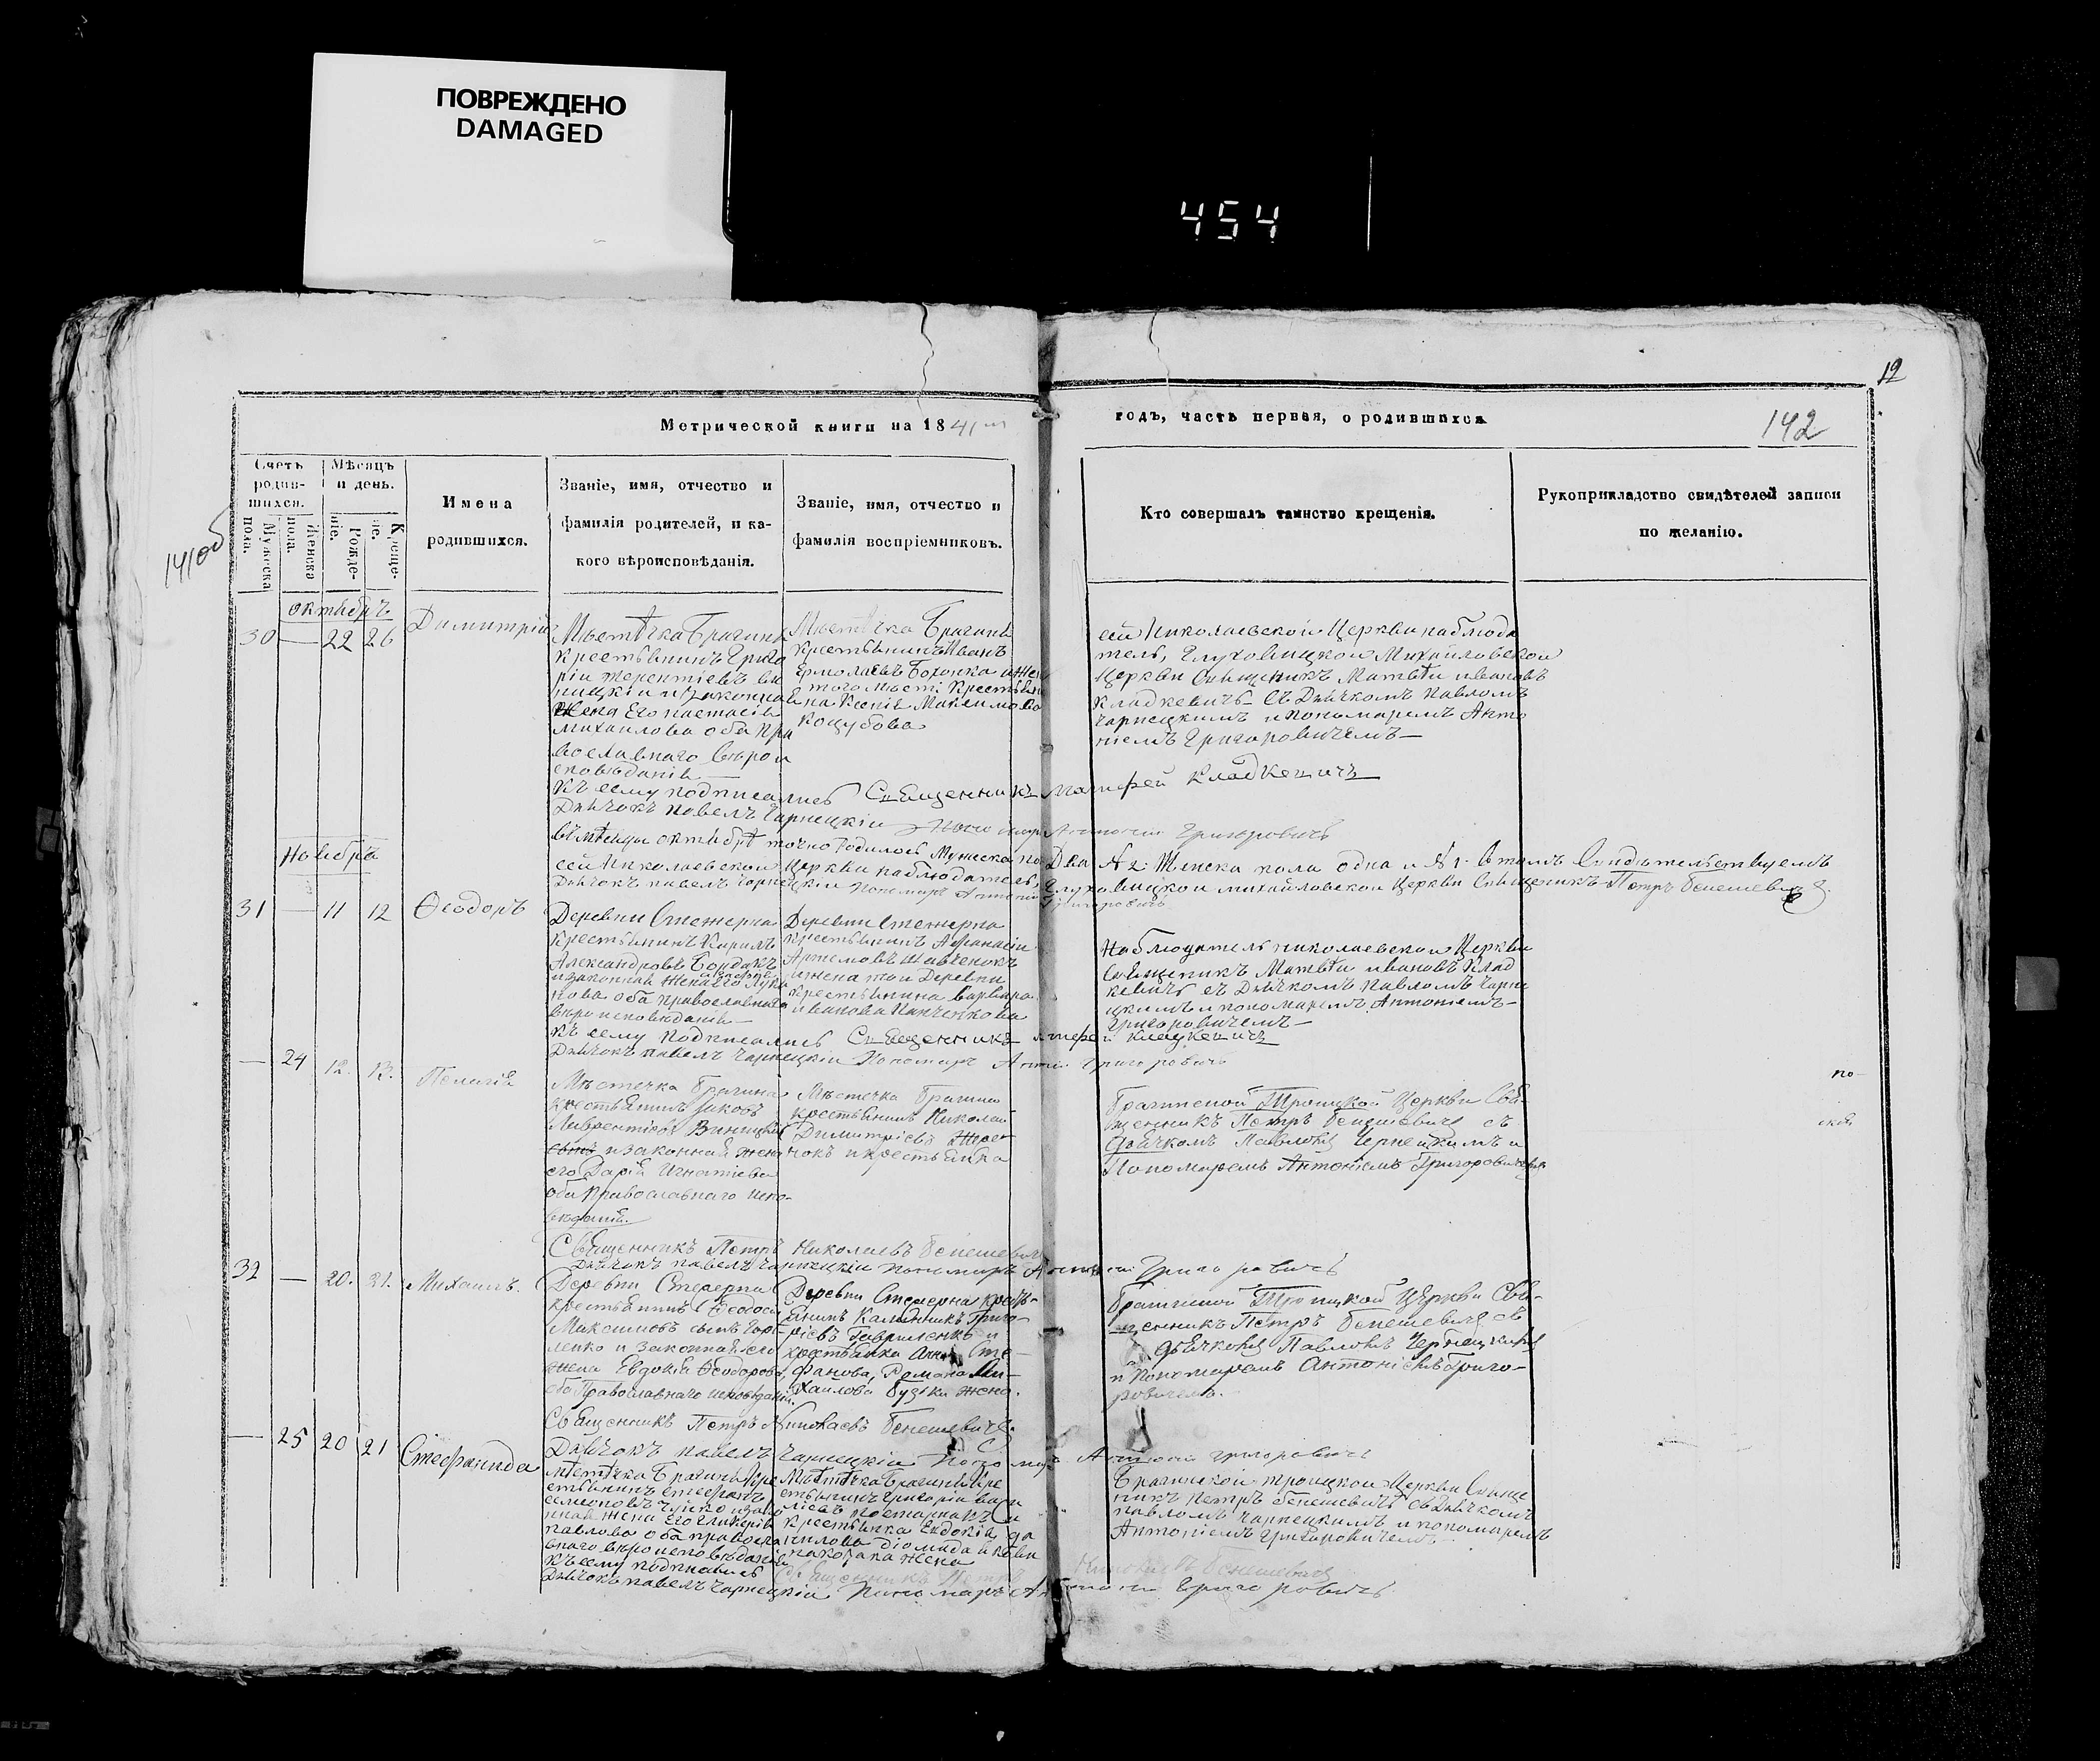 ПОВРЕЖДЕНО
DAMAGED
454
12
Метрической книги на 1841
годъ, часть первая, о родившихся
142
141об
Счетъ родив-шихся.
Мужеска пола.
Женска пола.
Мѣсяцъ и день.
Рожде-ніе.
Креще-ніе.
Имена
родившихся.
Званіе, имя, отчество и
фамилія родителей, и ка-
кого вѣроисповѣданія.
Званіе, имя, отчество и
фамилія воспріемниковъ.
Кто совершалъ таинство крещенія.
Рукоприкладство свидѣтелей записи
по желанію.
октябрь
30 — 22 26 Димитрій
Местѣчка Брагина
крестьянинъ Григо
рій Терентіевъ Ви
ницкій и законная
Жена Его настасія
михаилова оба пра
вославнаго вѣрои
сповѣданія —
Местѣчка Брагина
крестьянинъ Иванъ
Ермолаевъ
Ксенія Максимова
Коцубова
сей Николаевской Церкви наблюда
тель, Глуховицкой Михайловской
Церкви Священикъ Матвѣй ивановъ
Кладкевичъ съ Дьячкомъ Павломъ
Чарнецкимъ и пономаремъ Анто
ніемъ Григоровичемъ —
Къ сему подписались Священникъ Матфей Кладкевичъ
Дьячокъ павелъ Чарнецкій Пономарь Антоній Григоровичъ
Ноябрь
въ мѣсяцы октябрѣ точно родилось Мужеска по Два № 2: Женска пола одна и № 1. въ томъ Свидѣтельствуемъ
сей Николаевской Церкви наблюдатель, Глуховицкой михайловской Церкви Священикъ Петръ Бенешевичъ.
Дьячокъ павелъ Чарнецкій Пономарь Антоній Григоровичъ
31 — 11 12 Ѳеодоръ
Деревни Стежерна
Крестьянинъ Кирилъ
Александровъ
и законная Жена его Лукі
нова оба православнаго
вѣроисповѣданія —
Деревни Стежерна
крестьянинъ Афанасій
Артемовъ Шавченокъ
и жена той Деревни
крестьянина варвара
иванова
Наблюдатель николаевской Церкви
Священикъ Матвѣй ивановъ Клад
кевичъ съ Дьячкомъ Павломъ Чарне
цкимъ и пономаремъ Антоніемъ —
Григоровичемъ —
Къ сему подписались Священникъ Матфей Кладкевичъ
Дьячокъ павелъ Чарнецкій Пономарь Антоній Григоровичъ
— 24 12. 13. Пелагія
Мѣстечка Брагина
крестьянинъ Яковъ
Лаврентіевъ Виницкій
и законная жена
его Дарія Игнатіева
оба Православнаго испо-
вѣданія.
Мѣстечка Брагина
крестьянинъ Николай
Димитріевъ Жере-
нокъ и крестьянка
Брагинской Троицкой Церкви Свя-
щенникъ Петръ Бенешевичъ съ
дьячкомъ Павломъ Чернецкимъ и
Пономаремъ Антоніемъ Григоровичемъ
по-
Священникъ Петръ Николаевъ Бенешевичъ
Дьячокъ павелъ Чарнецкій Пономарь Антоній Григоровичъ
32 — 20. 21. Михаилъ.
Деревни Стежерна
крестьянинъ Ѳеодосій
Максимовъ сынъ
ленко и законная его
жена Евдокія Ѳеодорова,
оба Православнаго исповѣданія.
Деревни Стежерна крест-
янинъ Калиникъ Григо-
ріевъ Гавриленко и
крестьянка Анна Сте-
фанова, Романа Ми-
хаилова Бузка жена.
Брагинской Троицкой Церкви Свя-
щенникъ Петръ Бенешевичъ съ
дьячкомъ Павломъ Чернецкимъ
и Пономаремъ Антоніемъ Григо-
ровичемъ.
Священникъ Петръ Николаевъ Бенешевичъ.
Дьячокъ павелъ Чарнецкій Пономарь Антоній Григоровичъ
— 25 20 21 Стефанида
Мѣстѣчка Брагина кре
стьянинъ Стефанъ
семионовъ
нная жена Его Гликерія
павлова оба правосла
внаго вѣроисповѣданія
Мѣстѣчка Брагина кре
стьянинъ Григорій васи
ліевъ
крестьянка Евдокія да
нилова діомида
жена
Брагинской троицкой Церкви Свяще
никъ петръ Бенешевичъ съ Дьячкомъ
павломъ Чарнецкимъ и пономаремъ
Антоніемъ Григоровичемъ
Къ сему подписались Священникъ Петръ Николаевъ Бенешевичъ
Дьячокъ павелъ Чарнецкій Пономарь Антоній Григоровичъ